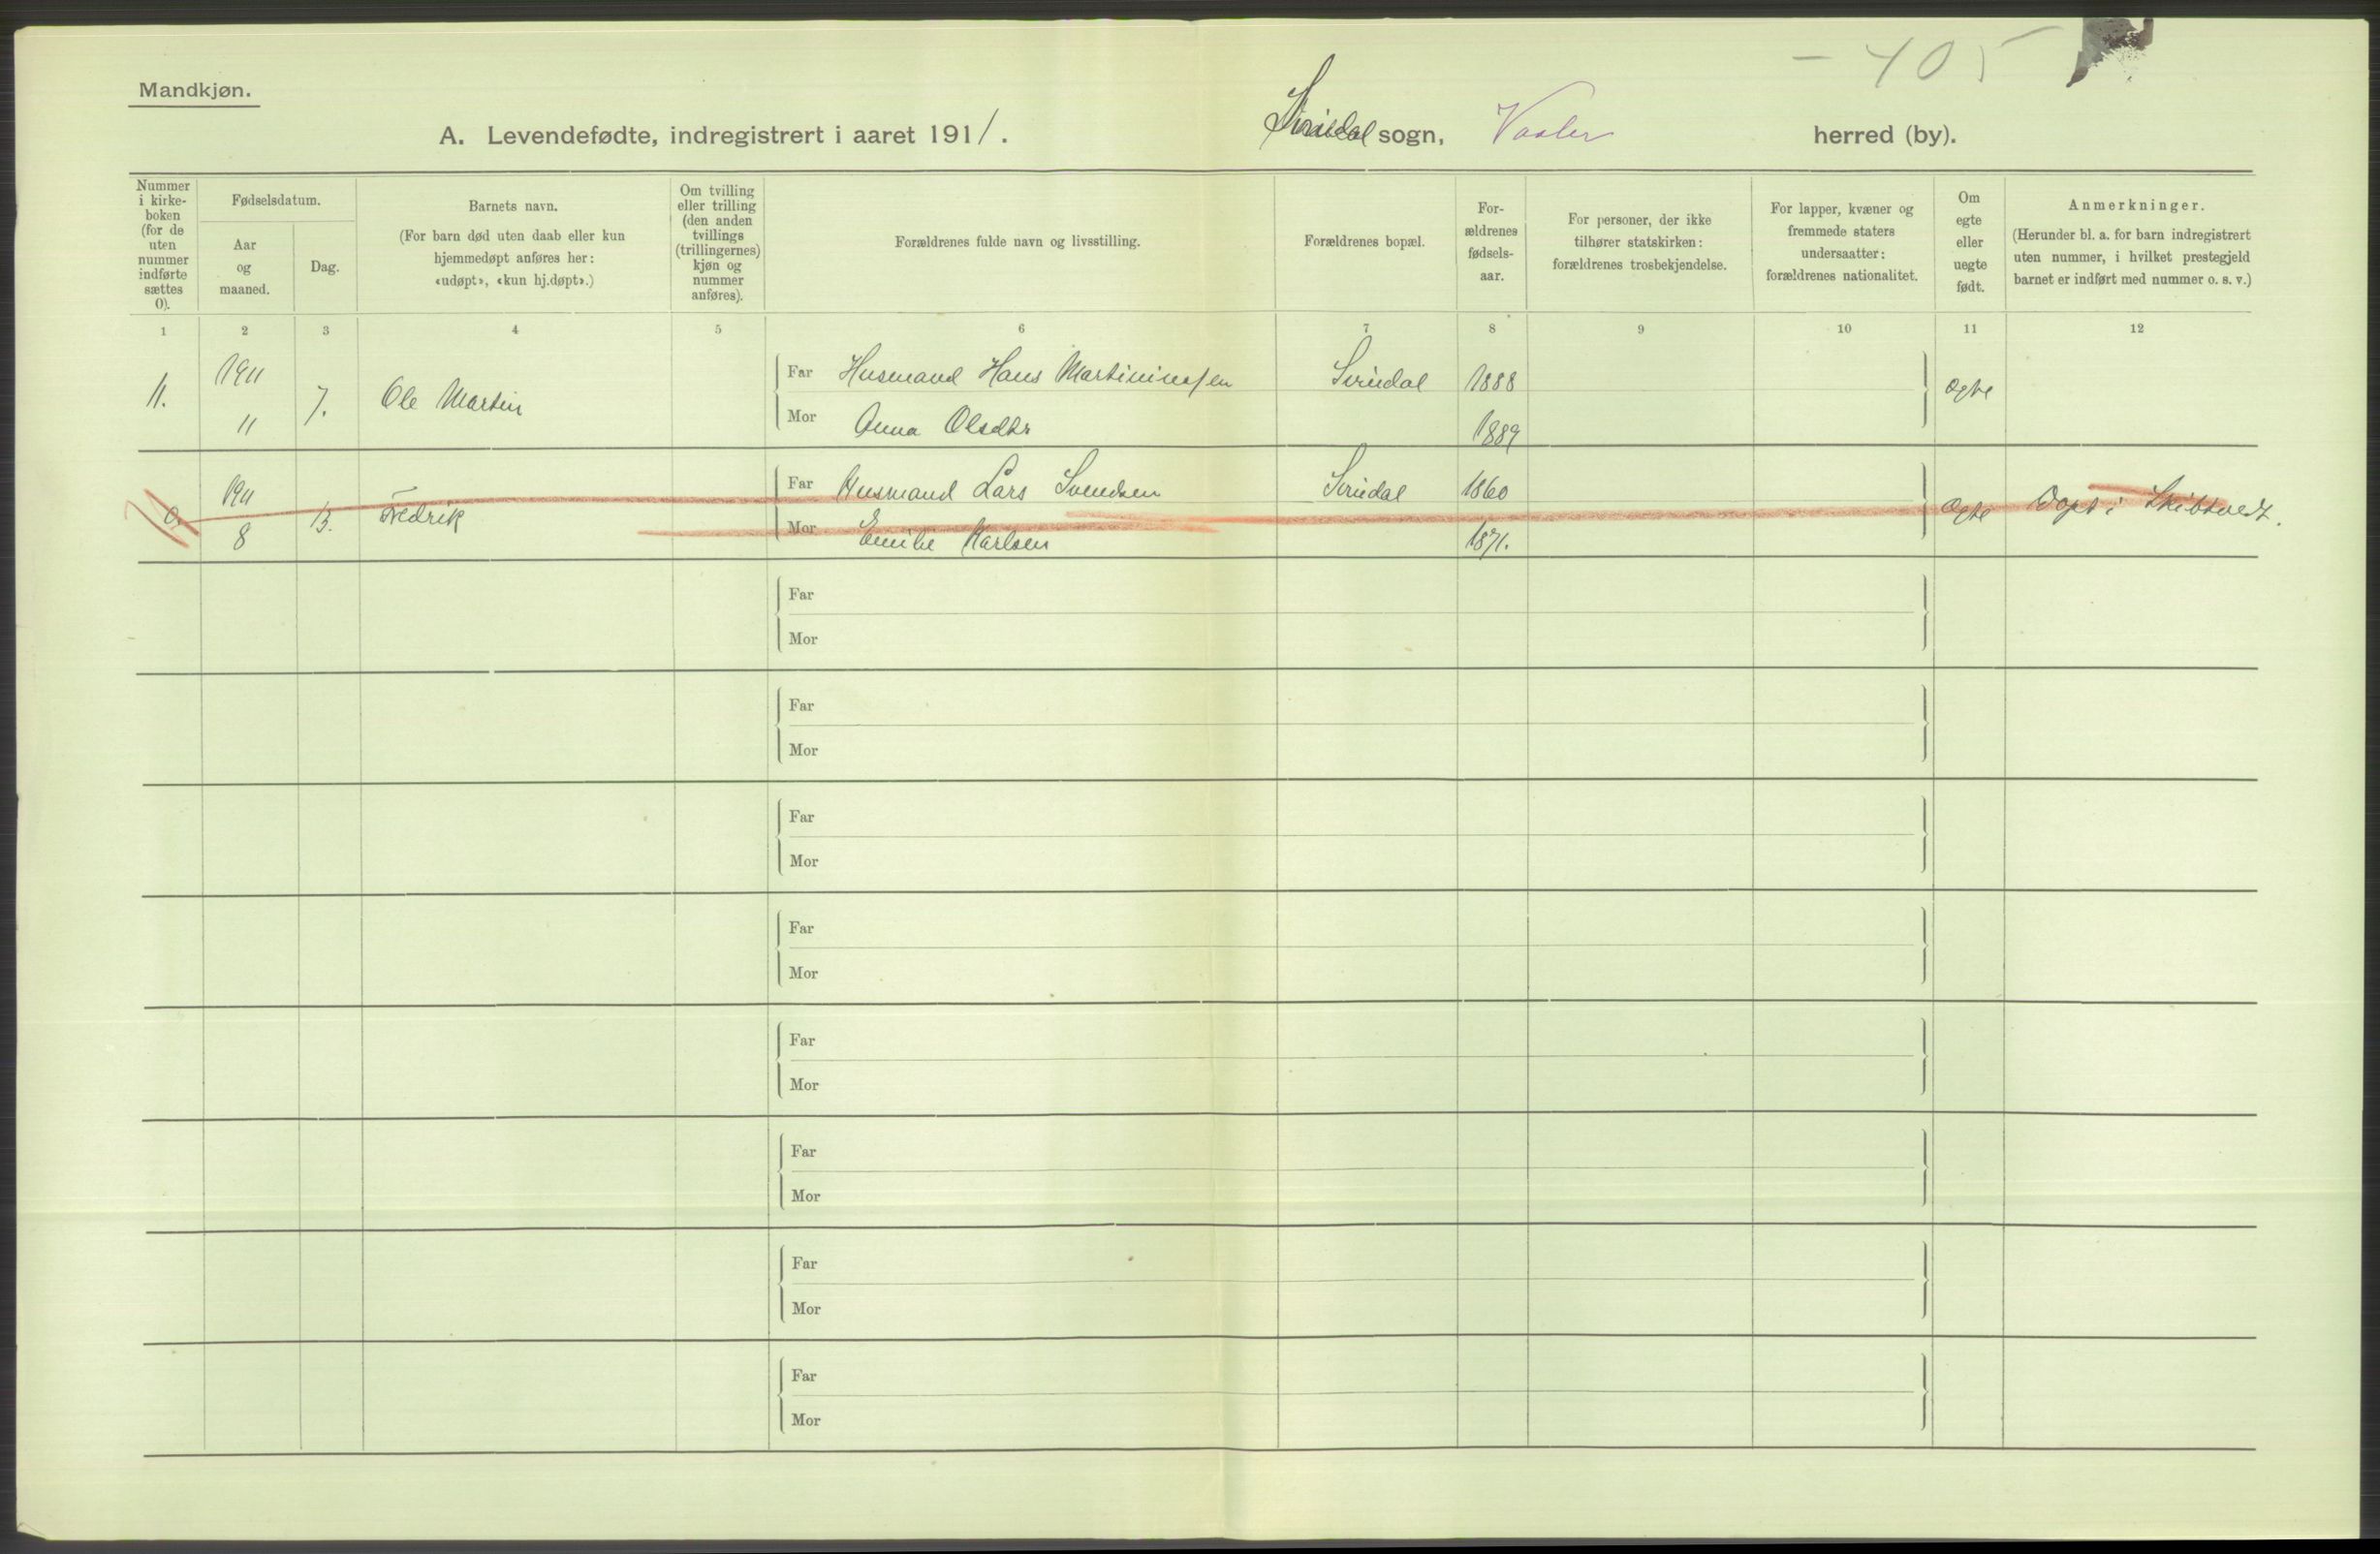 - 405
Mandkjøn.
A. Levendefødte, indregistrert i aaret 1911. Svindal sogn, Vaaler herred (by).
Nummer i kirke- boken (for de uten nummer indførte sættes 0).
Fødselsdatum.
Aar og maaned.
Dag.
Barnets navn.
(For barn død uten daab eller kun hjemmedøpt anføres her: «udøpt», «kun hj.døpt».)
Om tvilling eller trilling (den anden tvillings (trillingernes) kjøn og nummer anføres).
Forældrenes fulde navn og livsstilling.
Forældrenes bopæl.
For- ældrenes fødsels- aar.
For personer, der ikke tilhører statskirken: forældrenes trosbekjendelse.
For lapper, kvæner og fremmede staters undersaatter: forældrenes nationalitet.
Om egte eller uegte født.
Anmerkninger.
(Herunder bl. a. for barn indregistrert uten nummer, i hvilket prestegjeld barnet er indført med nummer o. s. v.)
1 2 3 4 5 6 7 8 9 10 11 12
11. 1911 11 7. Ole Martin Far Husmand Hans Martininssen Svindal 1888 Ogte
Mor Anna Olsdtr 1889
0. 1911 8 13. Fredrik Far Husmand Lars Svendsen Svindal 1860 Ogte Døpt i Skibtvedt.
Mor Emilie Karlsen 1871.
Far
Mor
Far
Mor
Far
Mor
Far
Mor
Far
Mor
Far
Mor
Far
Mor
Far
Mor